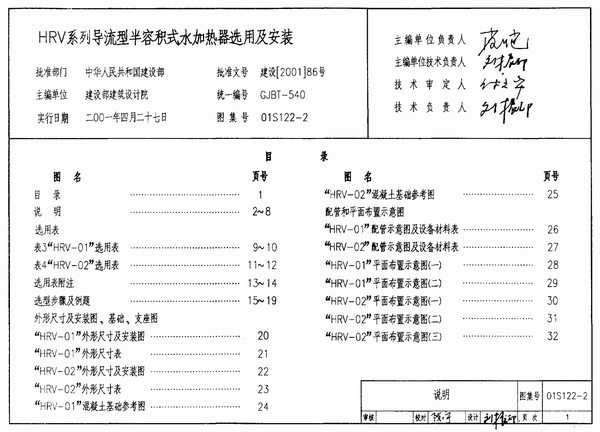 HRV系列导流型半容积式水加热器选用及安装
批准部门 中华人民共和国建设部 批准文号 建设[2001]86号
主编单位 建设部建筑设计院 统一编号 GJBT-540
实行日期 二00一年四月二十七日 图集号 01S122-2
主编单位负责人
主编单位技术负责人
技术审定人
技术负责人
目 录
图 名 页号
目 录 1
说 明 2~8
选用表
表3“HRV-01”选用表 9~10
表4“HRV-02”选用表 11~12
选用表附注 13~14
选型步骤及例题 15~19
外形尺寸及安装图、基础、支座图
“HRV-01”外形尺寸及安装图 20
“HRV-01”外形尺寸表 21
“HRV-02”外形尺寸及安装图 22
“HRV-02”外形尺寸表 23
“HRV-01”混凝土基础参考图 24
图 名 页号
“HRV-02”混凝土基础参考图 25
配管和平面布置示意图
“HRV-01”配管示意图及设备材料表 26
“HRV-02”配管示意图及设备材料表 27
“HRV-01”平面布置示意图(一) 28
“HRV-01”平面布置示意图(二) 29
“HRV-02”平面布置示意图(一) 30
“HRV-02”平面布置示意图(二) 31
“HRV-02”平面布置示意图(三) 32
说明 图集号 01S122-2
审核 校对 设计 页次 1